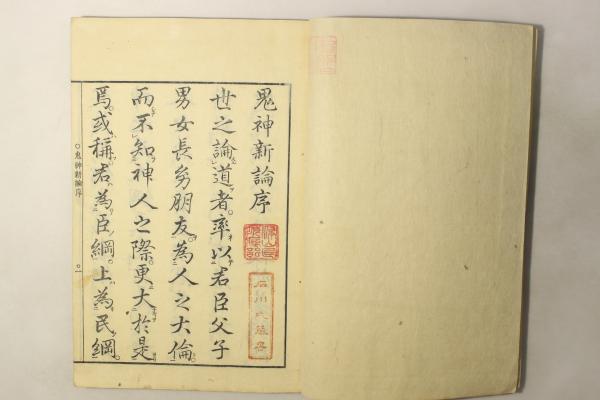 鬼神新論序
世之論道者率以君臣父子
男女長幼朋友為人之大倫
而不知神人之際更大於是
焉或稱君為臣綱上為民綱
○鬼神新論序
○一